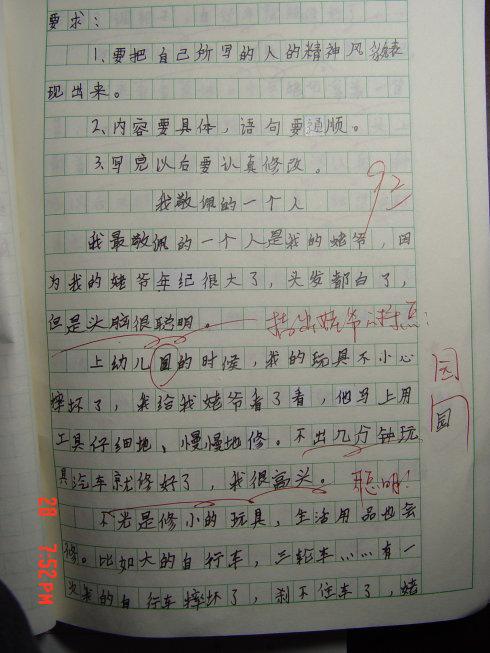 要求：
1、要把自己所写的人的精神风貌表
现出来。
2、内容要具体，语句要通顺。
3、写完以后要认真修改。
92
我敬佩的一个人
我最敬佩的一个人是我的姥爷，因
为我的姥爷年纪很大了，头发都白了，
但是头脑很聪明。
姥爷的特点：
上幼儿园的时候，我的玩具不小心
园
摔坏了，我给我姥爷看了看，他马上用
园
工具仔细地、慢慢地修。不出几分钟玩
具汽车就修好了，我很高兴。
聪明！
不光是修小的玩具，生活用品也会
修。比如大的自行车，三轮车……有一
次我的自行车摔坏了，刹不住车了，姥
28 7:52 PM